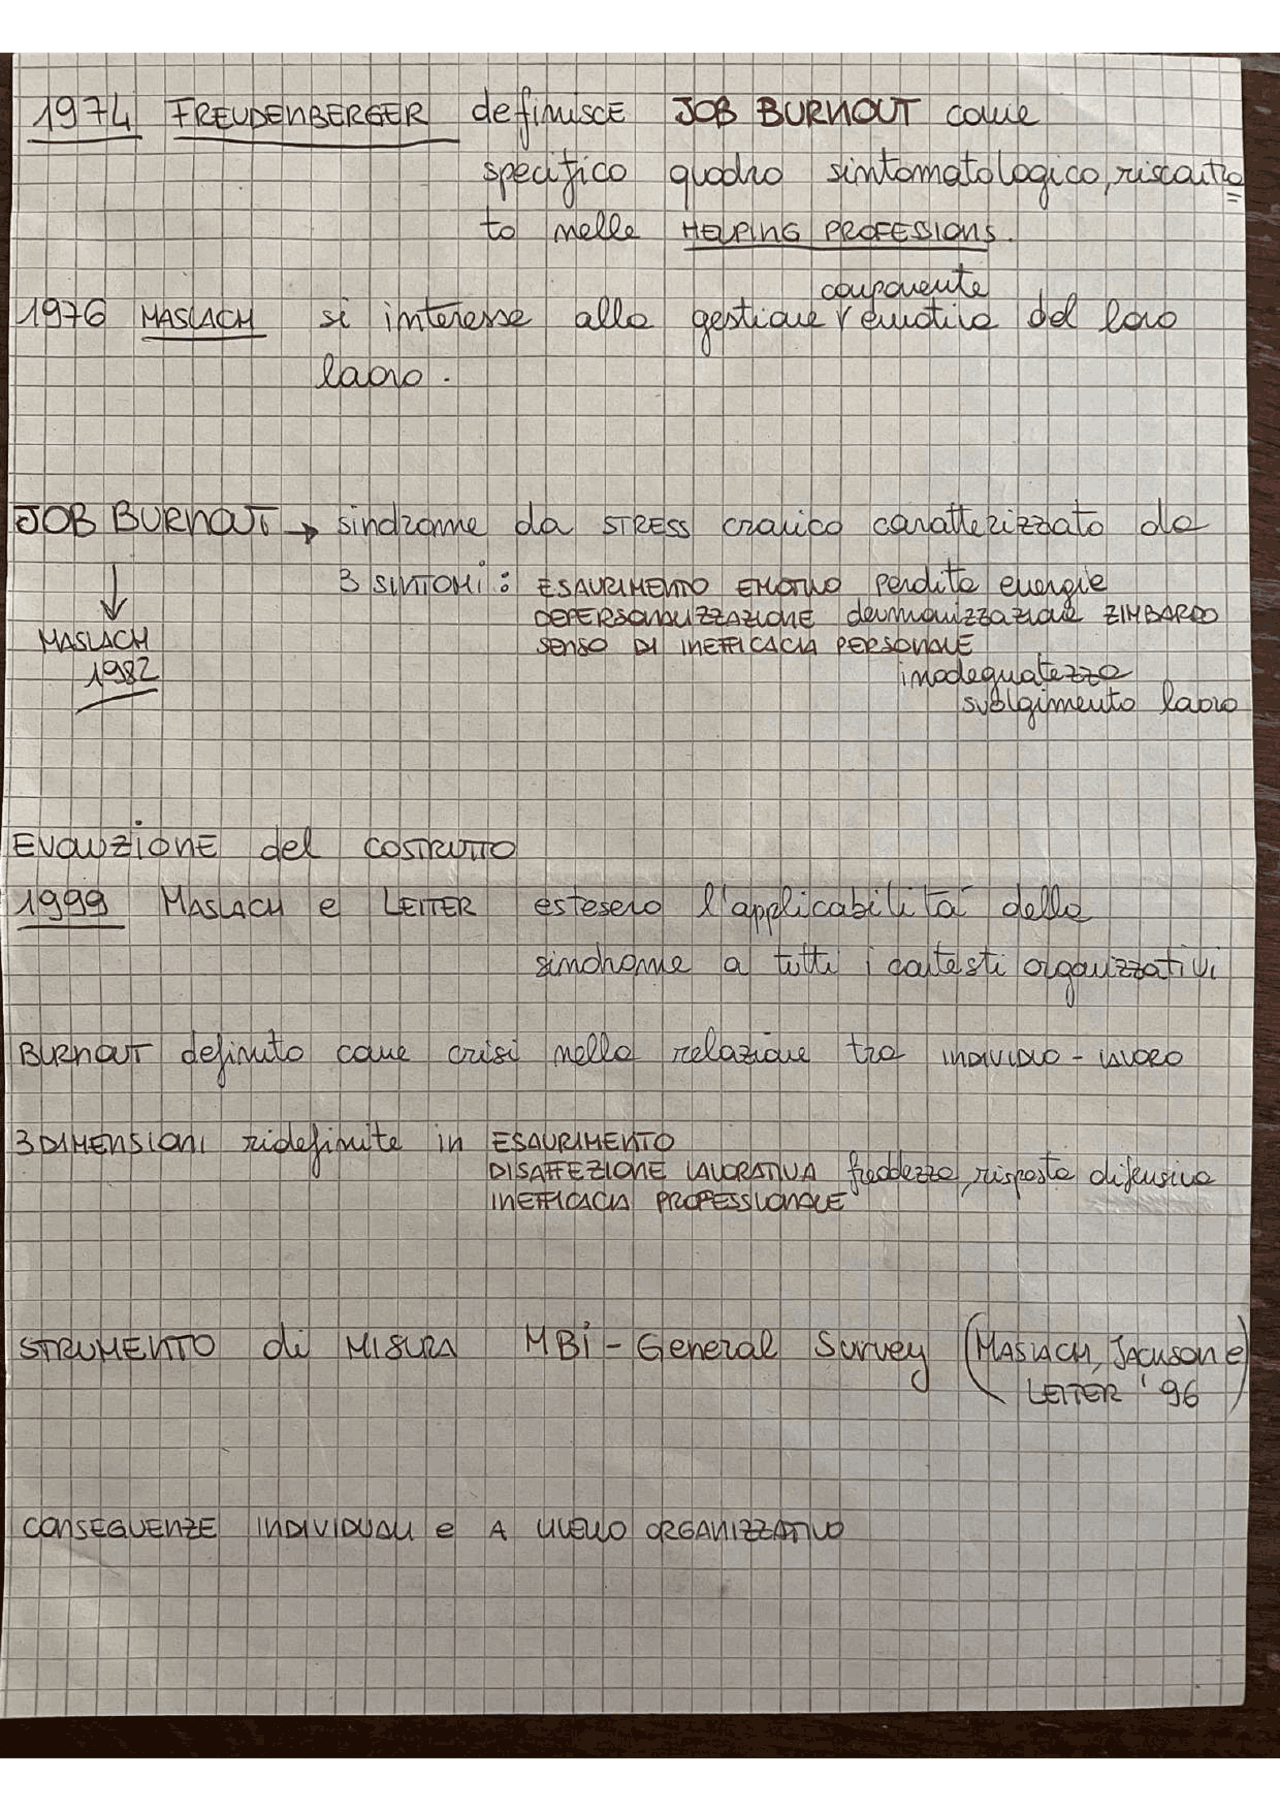 1974 FREUDENBERGER definisce JOB BURNOUT come
specifico quadro sintomatologico, riscontra
to nelle HELPING PROFESSIONS.
componente
1976 MASLACH si interesse alla gestione emotiva del loro
laoro.
JOB BURNOUT → sindrome da STRESS cronico caratterizzato da
3 SINTOMI: ESAURIMENTO EMOTIVO perdita energie
DEPERSONALIZZAZIONE deumanizzazione ZIMBARDO
MASLACH SENSO DI INEFFICACIA PERSONALE
1982 inadeguatezza
svolgimento laoro
EVOLUZIONE del COSTRUTTO
1999 MASLACH e LEITER estesero l'applicabilità della
sindrome a tutti i contesti organizzativi
BURNOUT definito come crisi nella relazione tra INDIVIDUO - LAVORO
3 DIMENSIONI ridefinite in ESAURIMENTO
DISAFFEZIONE LAVORATIVA freddezza, risposta difensiva
INEFFICACIA PROFESSIONALE
STRUMENTO di MISURA MBi - General Survey (MASLACH, JACKSON e
LEITER '96)
CONSEGUENZE INDIVIDUALI e A LIVELLO ORGANIZZATIVO